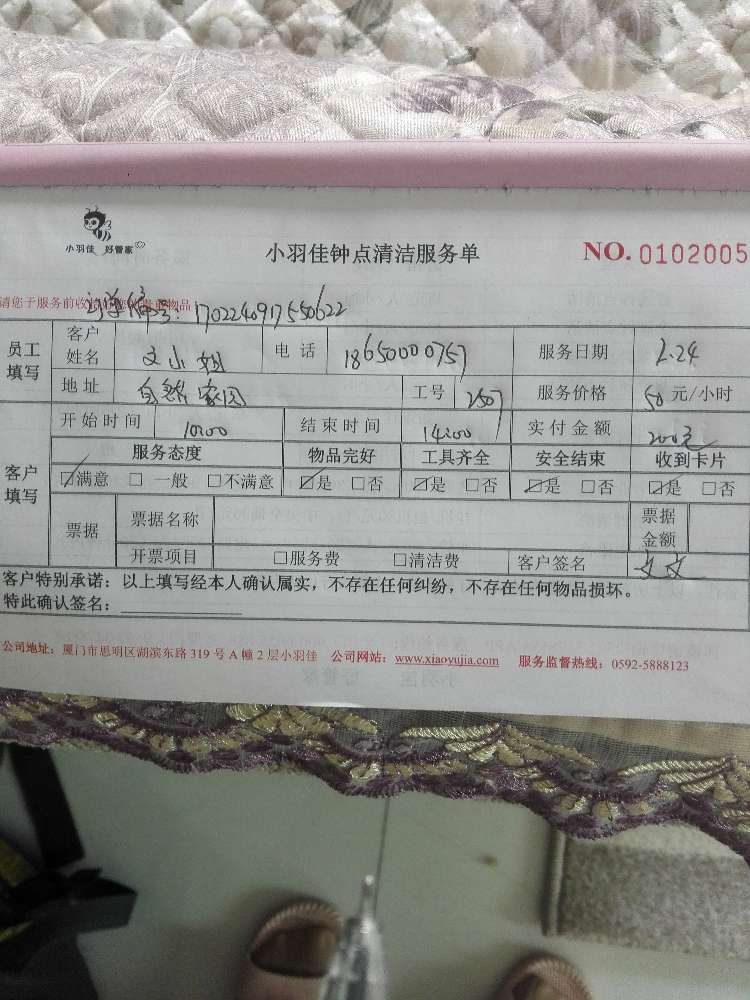 小羽佳 好管家
小羽佳钟点清洁服务单
NO. 0102005
请您于服务前收
物品
订单编号:1702240917550622
员工填写 客户姓名 文小姐 电话 18650000757 服务日期 2.24
地址 自然家园 工号 2507 服务价格 50 元/小时
客户填写 开始时间 10:00 结束时间 14:00 实付金额 200元
服务态度 物品完好 工具齐全 安全结束 收到卡片
☑满意 □ 一般 □不满意 ☑是 □否 ☑是 □否 ☑是 □否 ☑是 □否
票据 票据名称 票据金额
开票项目 □服务费 □清洁费 客户签名 文文
客户特别承诺:以上填写经本人确认属实,不存在任何纠纷,不存在任何物品损坏。
特此确认签名:
公司地址:厦门市思明区湖滨东路 319 号 A 幢 2 层小羽佳 公司网站:www.xiaoyujia.com 服务监督热线:0592-5888123